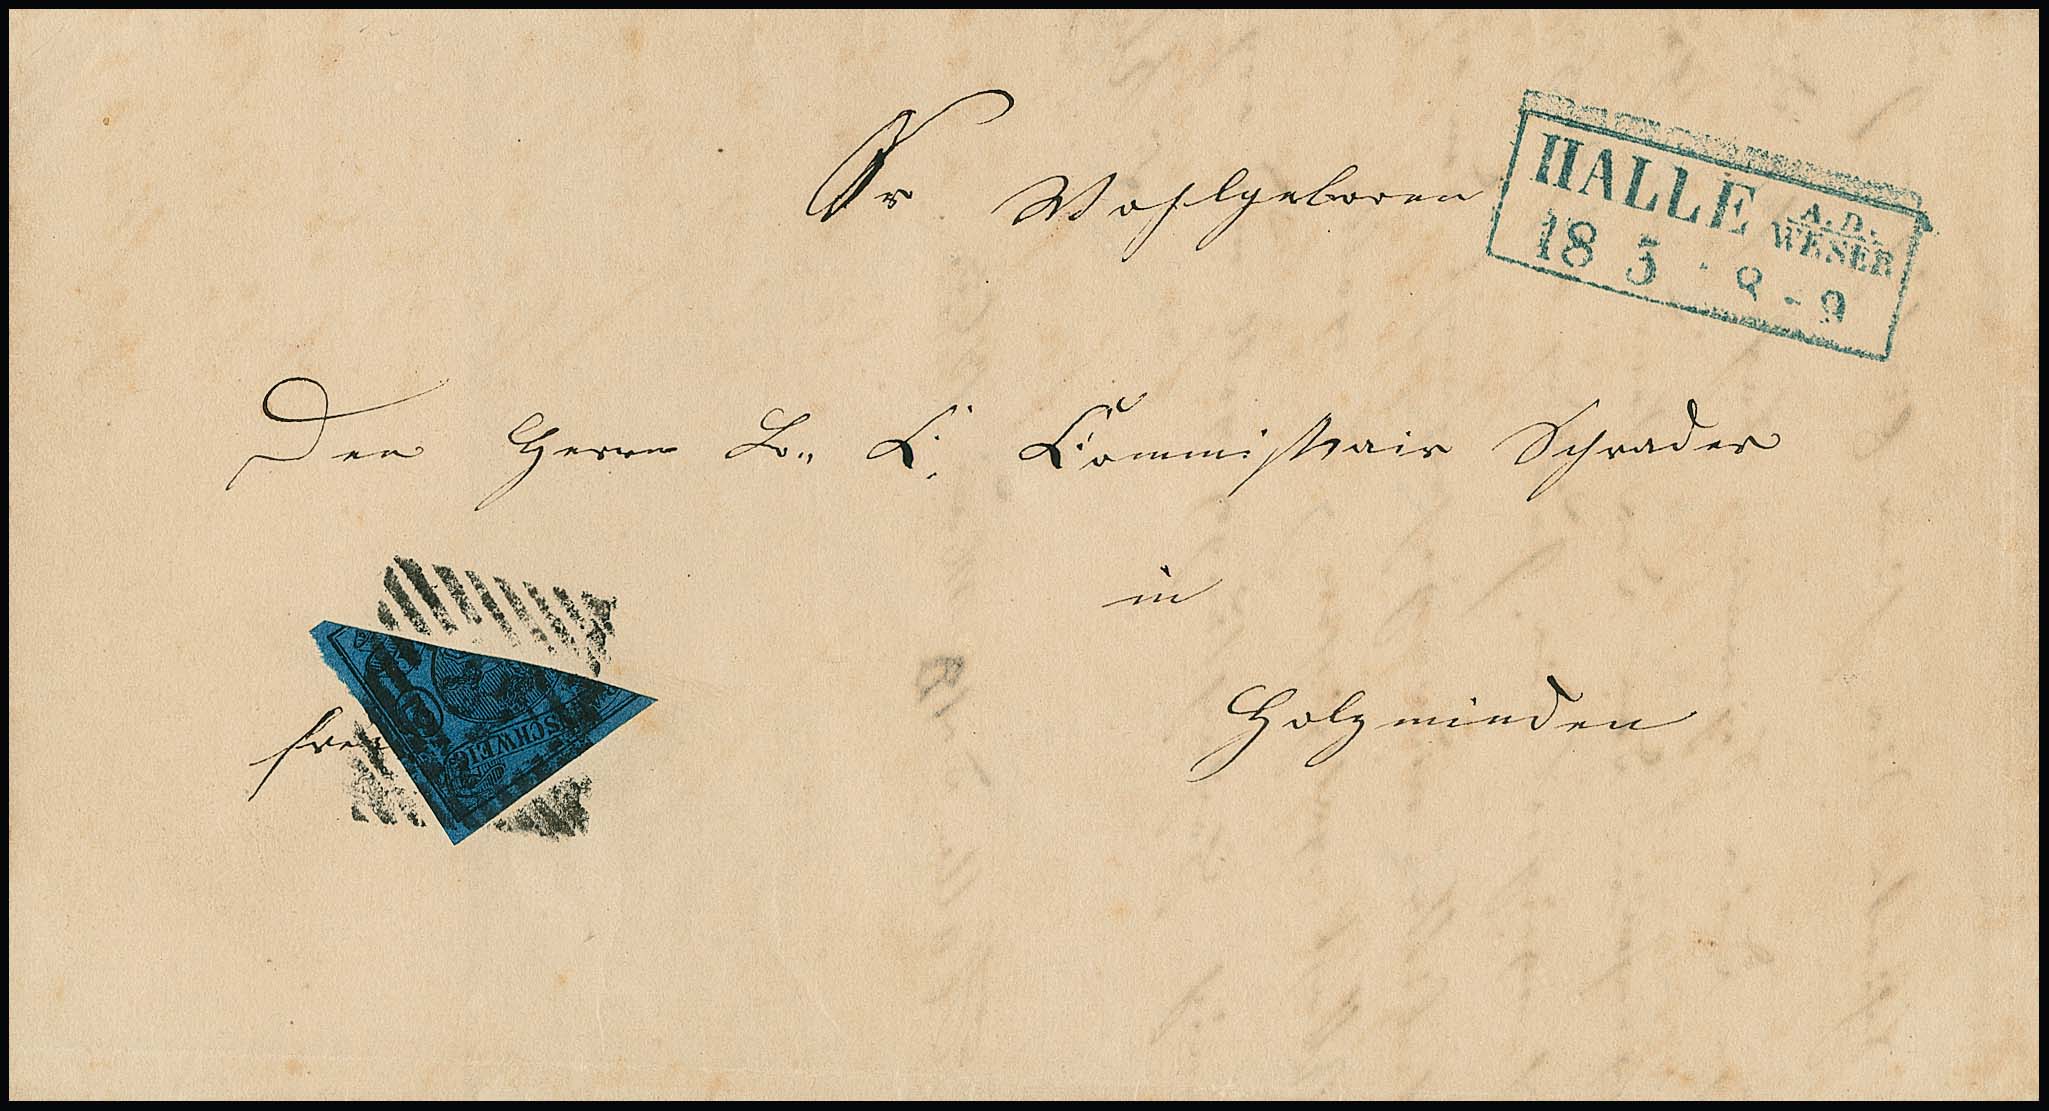 Sr Wohlgeboren
HALLE A.D. WESER
18 5 · 8 - 9
Den Herrn Commissair Schrader
in
Holzminden
SCHWEIG